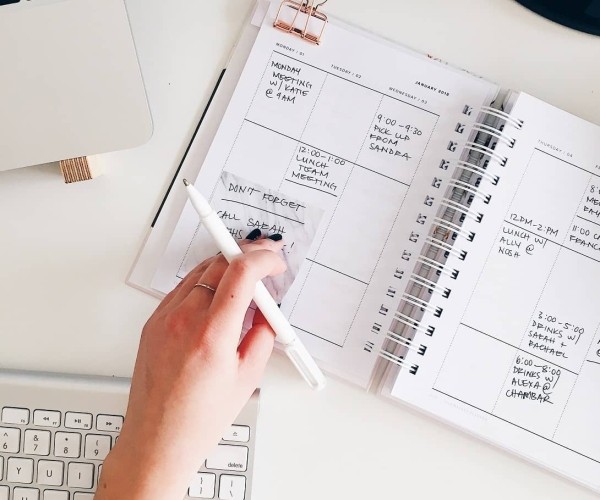 JANUARY 2018
MONDAY / 01
MONDAY
MEETING
W/ KATIE
@ 9AM
TUESDAY / 02
12:00-1:00
LUNCH
TEAM
MEETING
WEDNESDAY / 03
9:00-9:30
PICK UP
FROM
SANDRA
DON'T FORGET
CALL SARAH
THURSDAY / 04
12PM-2PM
LUNCH W/
ALLY @
NOSH
3:00-5:00
DRINKS W/
SARAH +
RACHAEL
6:00-8:00
DRINKS W/
ALEXA @
CHAMBAR
11:00
FRANC
^
6
&
7
*
8
(
9
Y
U
I
delete